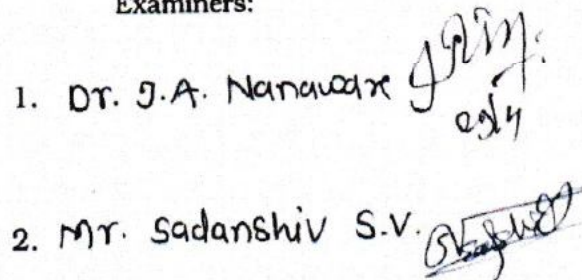 Examiners:
1. Dr. J.A. Nanaware
2. Mr. Sadanshiv S.V.